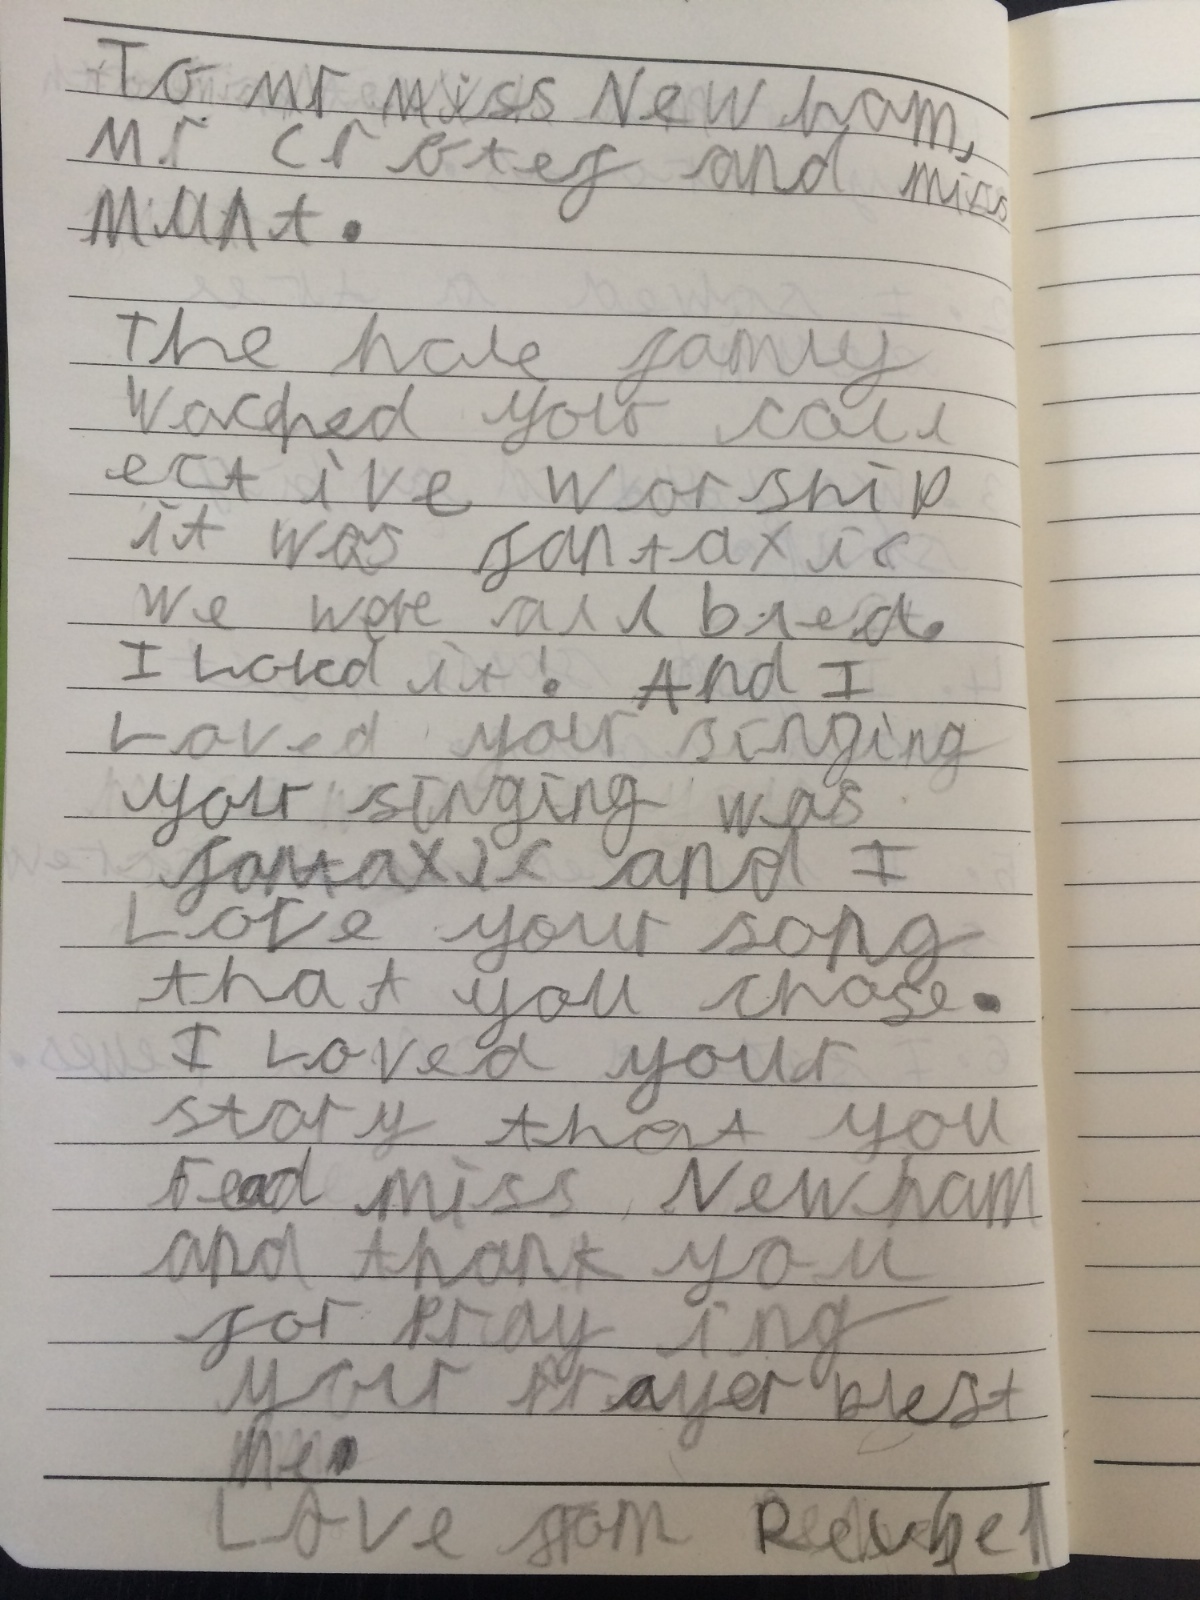 To Mr miss Newham,
Mr Crotey and miss
Munt.
The hole famly
Wached your coll
ective Worship
it was fantaxic
We were all blesd.
I Loved it! And I
Loved your singing
your singing was
fantaxic and I
Love your song
that you chose.
I Loved your
story that you
read miss Newham
and thank you
for Pray ing
your prayer blest
me.
Love from